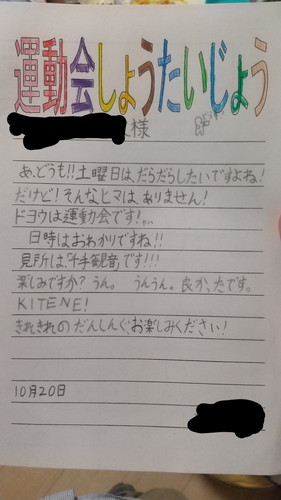 運動会しょうたいじょう
様
あ、どうも!!土曜日は、だらだらしたいですよね!
だけど!そんなヒマは、ありません!
ドヨウは運動会です!
日時はおわかりですね!!
見所は、「千手観音」です!!!
楽しみですか?うん。 うんうん。良かったです。
KITENE!
きれきれのだんしんぐ、お楽しみください!
10月20日